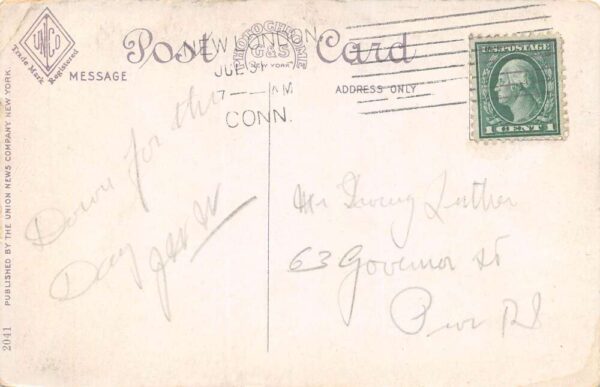 UNCo
Trade Mark Registered
Post Card
PHOTOCHROME
C&S
NEW YORK
NEW LONDON,
7—AM
CONN.
MESSAGE
ADDRESS ONLY
U.S. POSTAGE
1 CENT 1
Down for the
Day
Mr Irving Luther
63 Governor St
Prov RI
PUBLISHED BY THE UNION NEWS COMPANY NEW YORK
2041